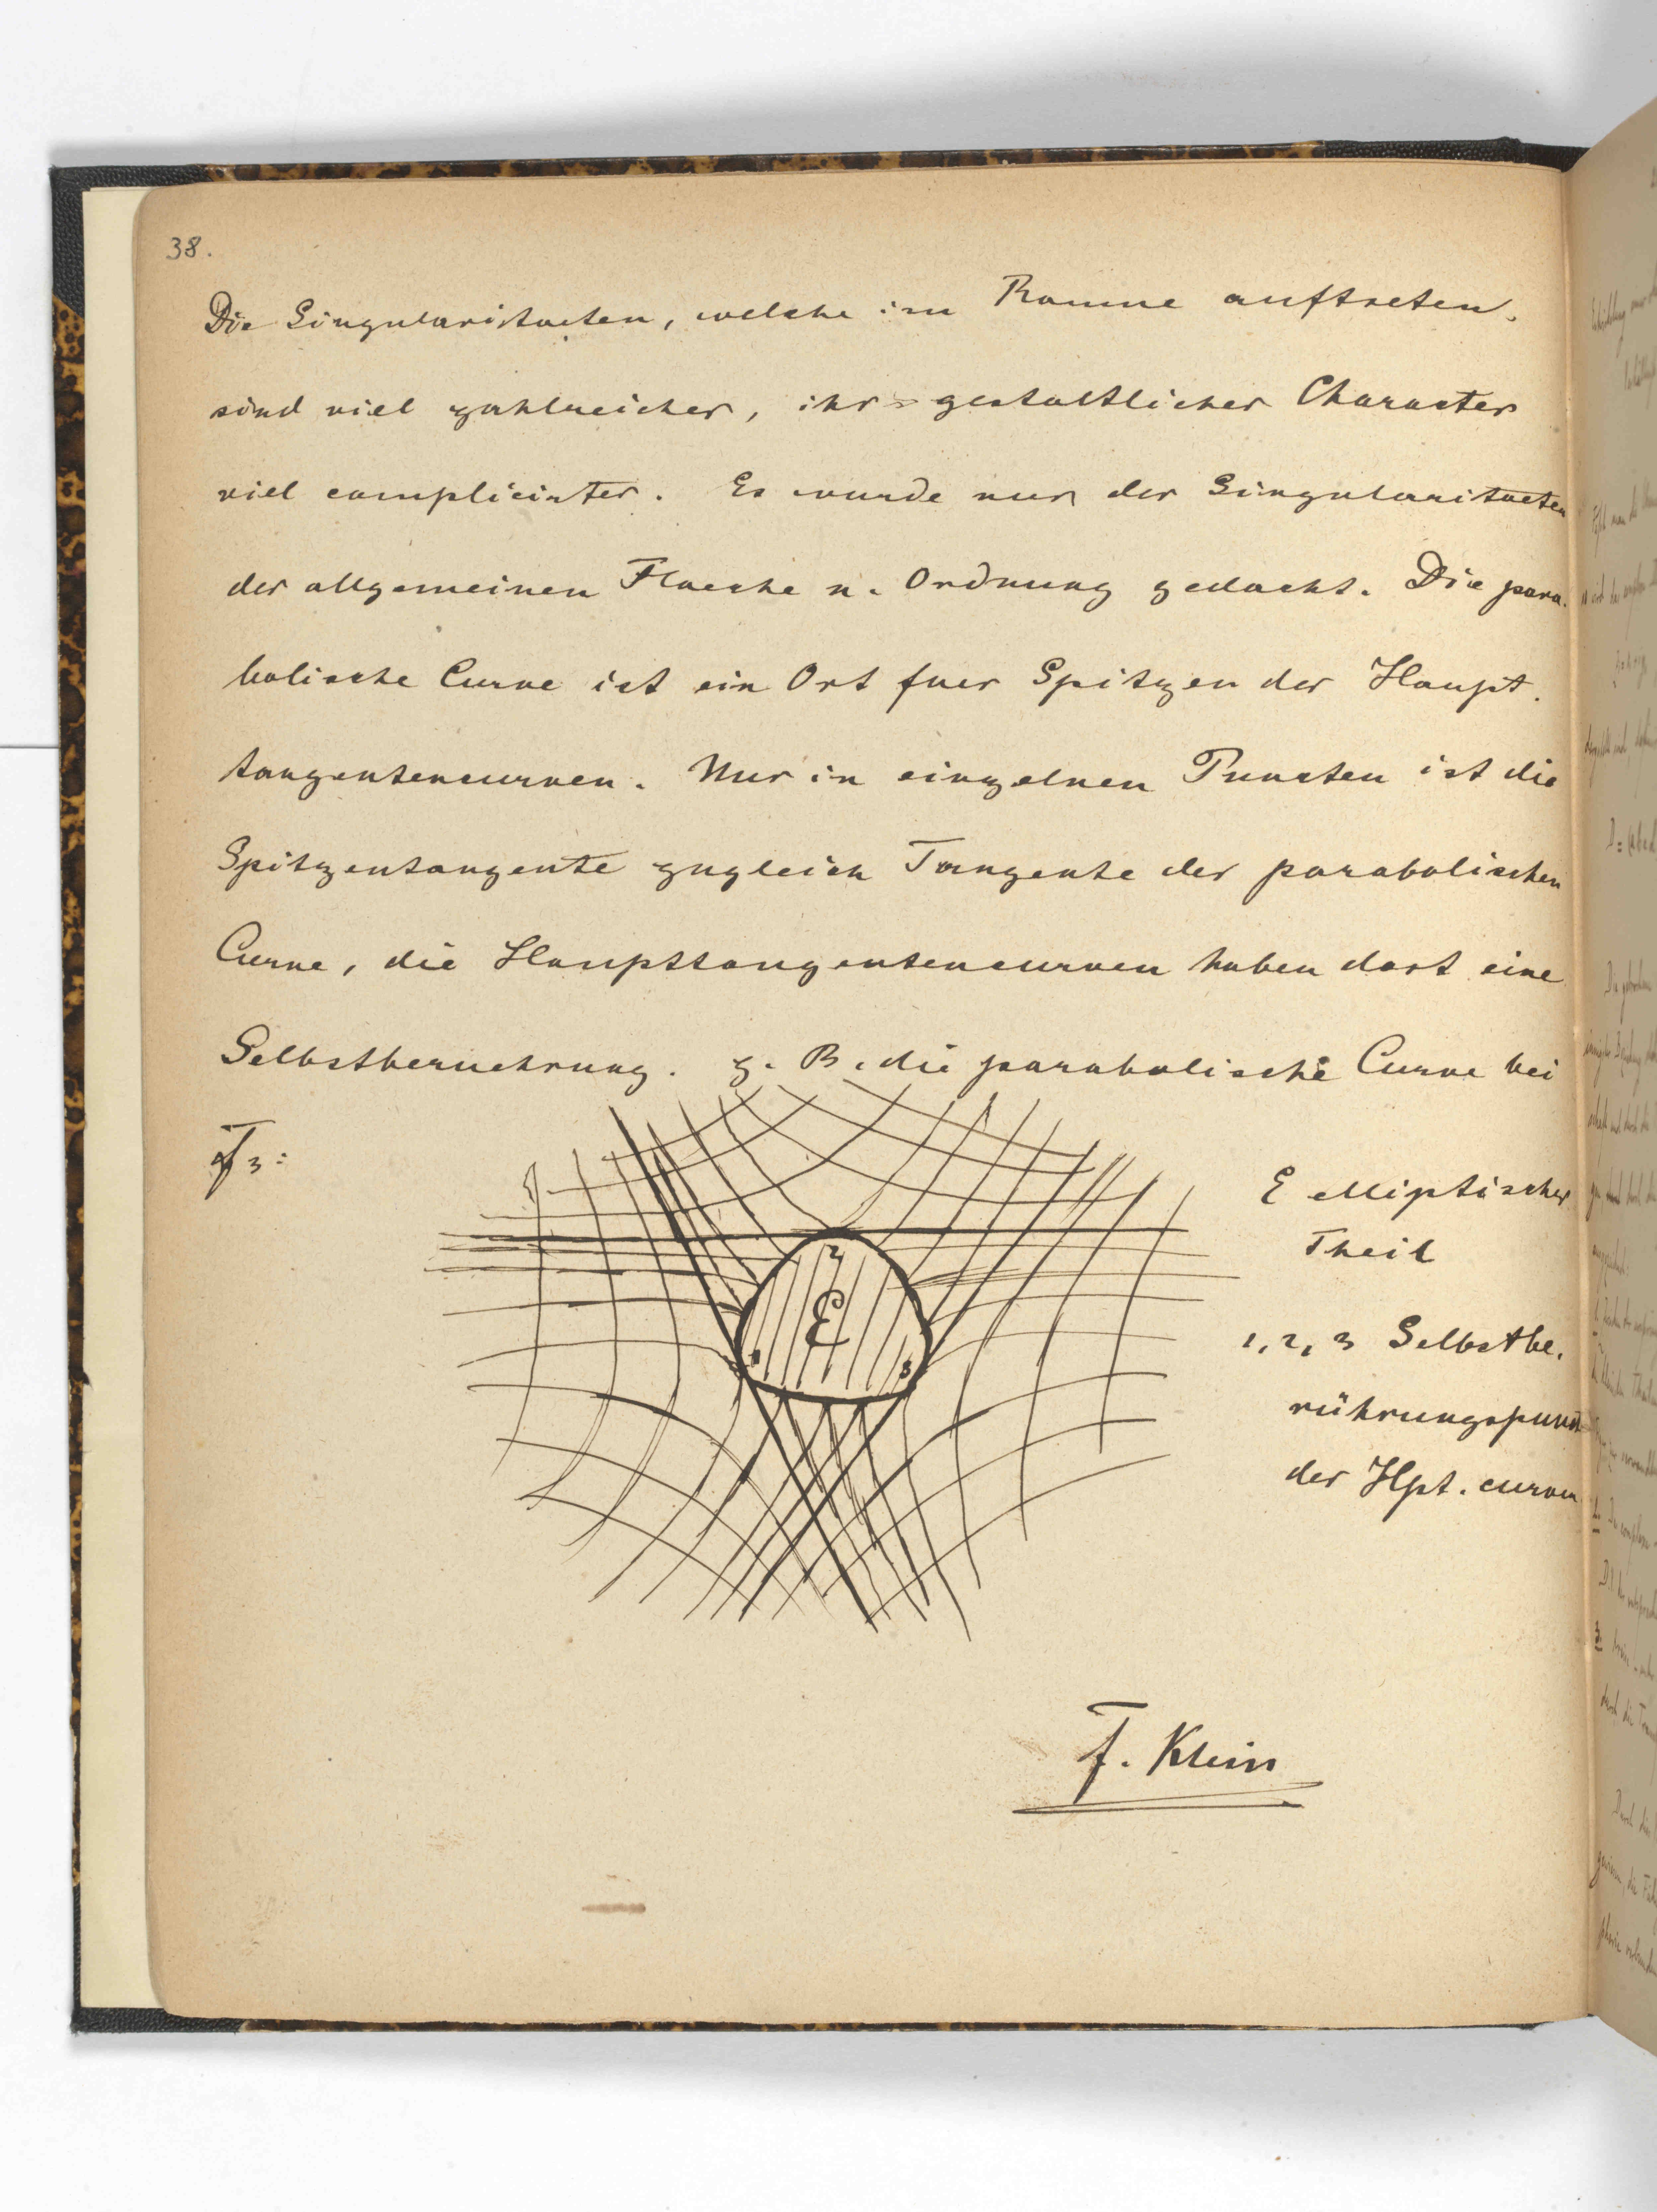 38.
Die Singularitaeten, welche im Raume auftreten,
sind viel zahlreicher, ihr gestaltlicher Character
viel complicirter. Es wurde nur der Singularitaeten
der allgemeinen Flaeche n. Ordnung gedacht. Die para-
bolische Curve ist ein Ort fuer Spitzen der Haupt-
tangentencurven. Nur in einzelnen Puncten ist die
Spitzentangente zugleich Tangente der parabolischen
Curve, die Haupttangentencurven haben dort eine
Selbstberuehrung. z. B. die parabolische Curve bei
F3:
2
E
1
3
E elliptischer
Theil
1, 2, 3 Selbstbe-
rührungspunct
der Hpt. curven
F. Klein